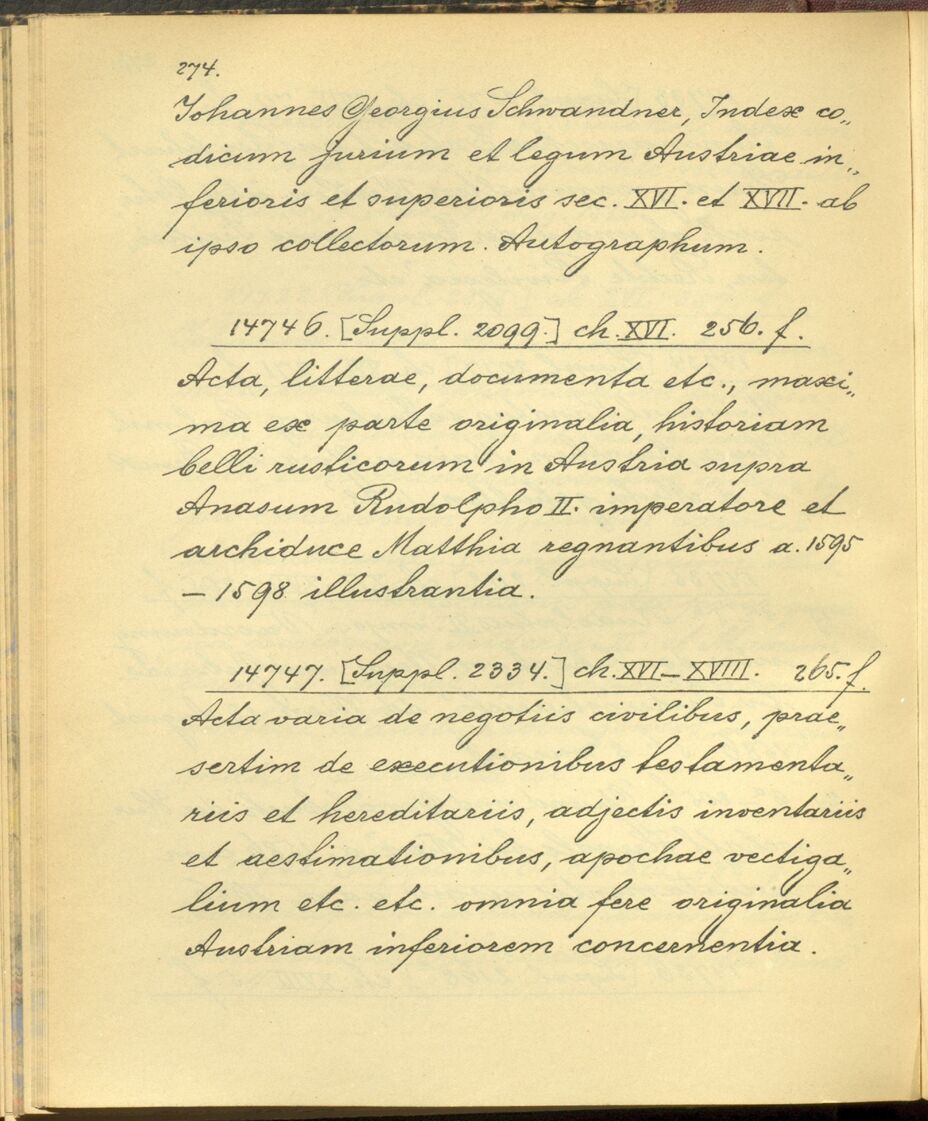 274.
Johannes Georgius Schwandner, Index co„
dicum jurium et legum Austriae in„
ferioris et superioris sec. XVI. et XVII. ab
ipso collectorum. Autographum.
14746. [Suppl. 2099.] ch. XVI. 256. f.
Acta, litterae, documenta etc., maxi„
ma ex parte originalia, historiam
belli rusticorum in Austria supra
Anasum Rudolpho II. imperatore et
archiduce Matthia regnantibus a. 1595
– 1598 illustrantia.
14747. [Suppl. 2334.] ch. XVI – XVIII. 265. f.
Acta varia de negotiis civilibus, prae„
sertim de executionibus testamenta„
riis et hereditariis, adjectis inventariis
et aestimationibus, apochae vectiga„
lium etc. etc. omnia fere originalia
Austriam inferiorem concernentia.